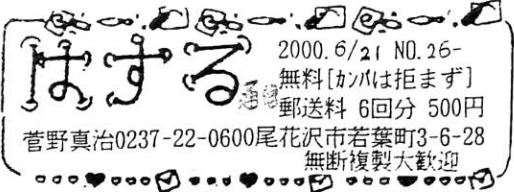 はする
通信
2000.6/21 NO.26-
無料[カンパは拒まず]
郵送料 6回分 500円
菅野真治0237-22-0600尾花沢市若葉町3-6-28
無断複製大歓迎